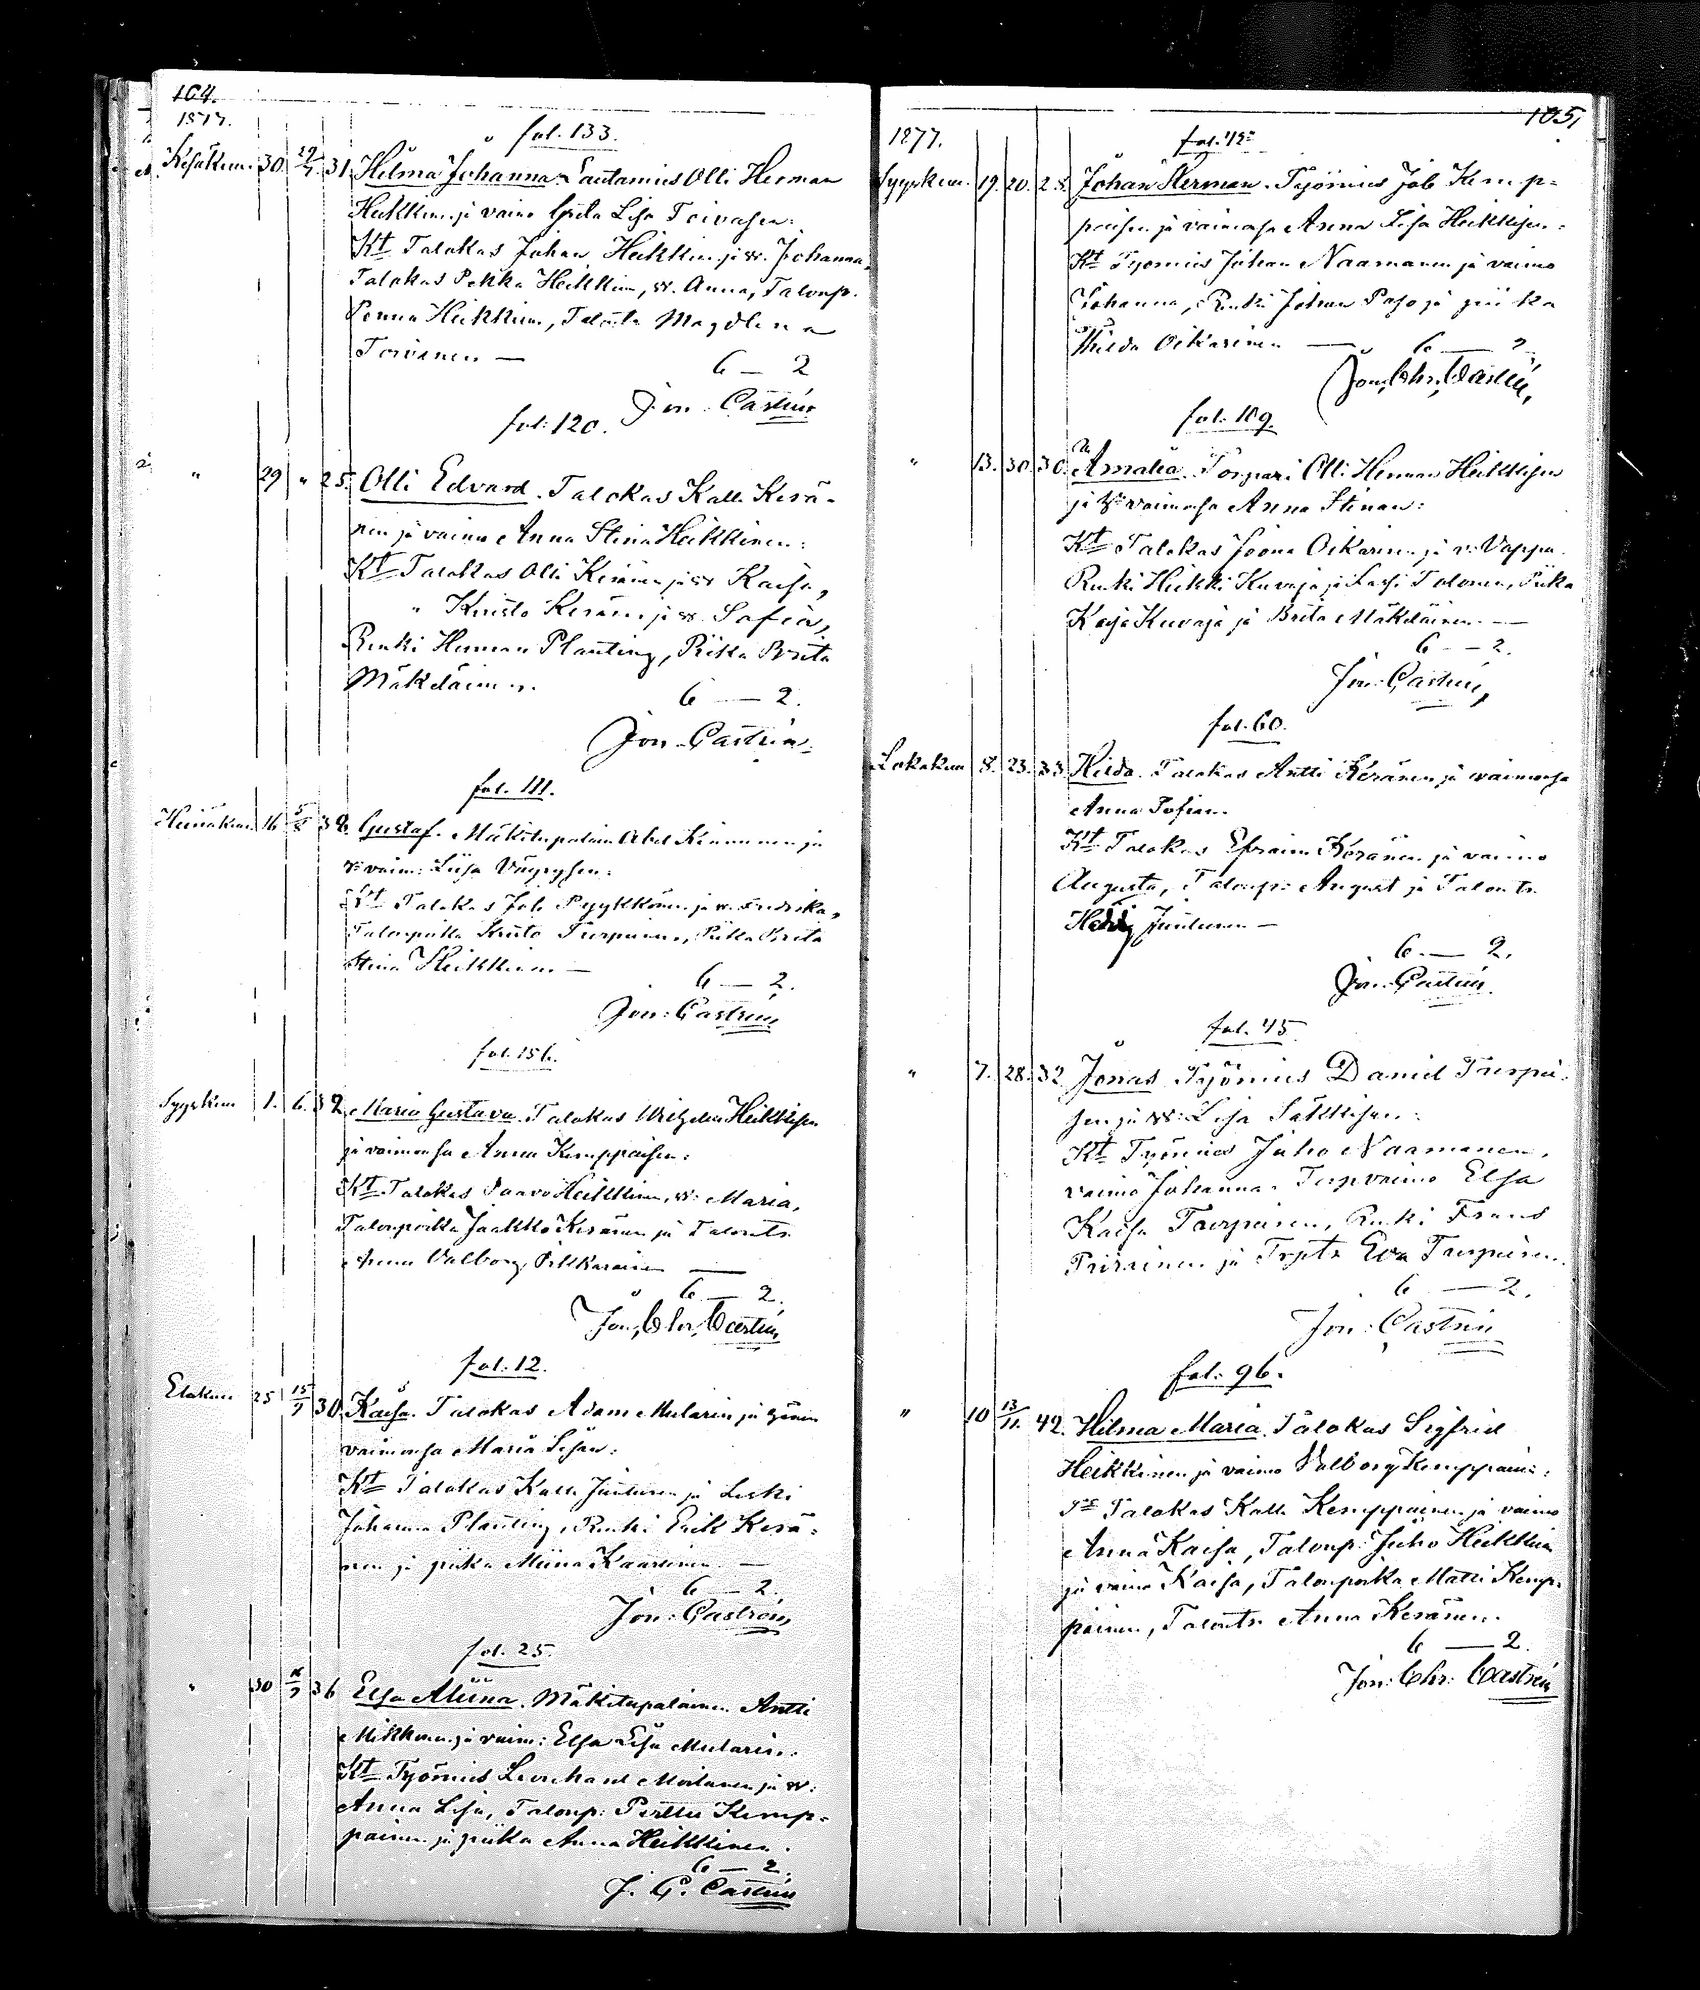 104.
1877.
fol. 133.
Kesäkuu. 30. 29/7 31. Hilma Johanna. Lautamies Olli Herman
Heikkinen ja vaimo Greta Lisa Toivasen:
Kt Talokas Johan Heikkinen ja w. Johanna,
Talokas Pekka Heikkinen, w. Anna, Taloup.
Heikkinen, Magdlena
Toivanen —
6 — 2
Jon. Castrén
fol: 120.
" 29 " 25. Olli Edvard. Talokas Kalle Kerä-
nen ja vaimo Anna Stina Heikkinen:
Kt Talokas Olli Keränen ja w. Kaisa,
" Kristo Keränen ja w. Sofia,
Renki Herman Planting, Piika Brita
Mäkeläinen.
6 — 2.
Jon. Castrén.
fol. 111.
Heinäkuu. 16 5/8 38. Gustaf. Mäkitupalain. Abel Kinnunen ja
vaim: Liisa Väyrysen:
Kt Talokas Job Pyykkönen ja w. Fredrika,
Talonpoika Kristo Turpeinen, Piika Brita
Stina Heikkinen —
6 — 2.
Jon: Castrén
fol. 156.
Syyskuu 1. 6. 32. Maria Gustava. Talokas Wilhelm Heikkisen
ja vaimonsa Anna Kemppaisen:
Kt Talokas Paavo Heikkinen, w: Maria,
Talonpoika Jaakko Keränen ja Talontr.
Anna Valborg Pikkarainen —
6 — 2.
Jon. Chr. Castrén
fol: 12.
Elokuu 25 15/9 30. Kaisa. Talokas Adam Mularin ja
vaimonsa Maria Lisan:
Kt Talokas Kalle Juntunen ja Leski
Johanna Planting, Renki Erik Kerä-
nen ja piika Miina Kaartinen —
6 — 2.
Jon: Castrén
fol. 25.
" 30 36 Elsa Miina. Mäkitupalainen Antti
Mikkonen ja vaim: Elsa Lisa Mularin:
Kt Työmies Leonhard Moilanen ja w:
Anna Lisa, Taloup: Perttu Kemp-
painen ja piika Anna Heikkinen.
6 — 2.
J. C. Castrén
105,
1877.
Syyskuu. 19. 20. 25. Johan Herman. Työmies Job Kemp-
paisen ja vaimonsa Anna Lisa Heikkisen:
Kt Työmies Johan Naamanen ja vaimo
Johanna, Renki Johan Paso ja piika
Hilda Oikarinen — 6 — 2.
Jon. Chr. Castrén,
fol: 109.
" 13. 30. 30. Amalia. Torpari Olli Herman Heikkisen
ja vaimonsa Anna Stinan:
Kt Talokas Joona Oikarinen ja v: Vappu
Renki Heikki Kuvaja ja Lassi Tolonen, Piika
Kaisa Kuvaja ja Brita Mäkeläinen. —
6 — 2.
Jon: Castrén,
fol. 60.
Lokakuu 8. 23. 33. Hilda. Talokas Antti Keränen ja vaimonsa
Anna Sofian.
Kt Talokas Efraim Keränen ja vaimo
Augusta, Taloup: August ja Talontr.
Hedvig Juntunen —
6 — 2.
Jon. Castrén.
fol. 45
" 7. 28. 32. Jonas. Työmies Daniel Turpei-
sen ja w: Lisa Säkkisen:
Kt Työmies Juho Naamanen,
vaimo Johanna. Torp.vaimo Elsa
Kaisa Turpeinen, Renki Frans
Piirainen ja Trptr Eva Turpeinen.
6 — 2.
Jon: Castrén
fol: 96.
" 10 13/11. 42. Hilma Maria. Talokas Sigfrid
Heikkinen ja vaimo Valborg Kemppainen:
Talokas Kalle Kemppainen ja vaimo
Anna Kaisa, Taloup: Juho Heikkinen
ja vaimo Kaisa, Talonpoika Matti Kemp-
painen, Talontr. Anna Keränen.
6 — 2.
Jon: Chr: Castrén